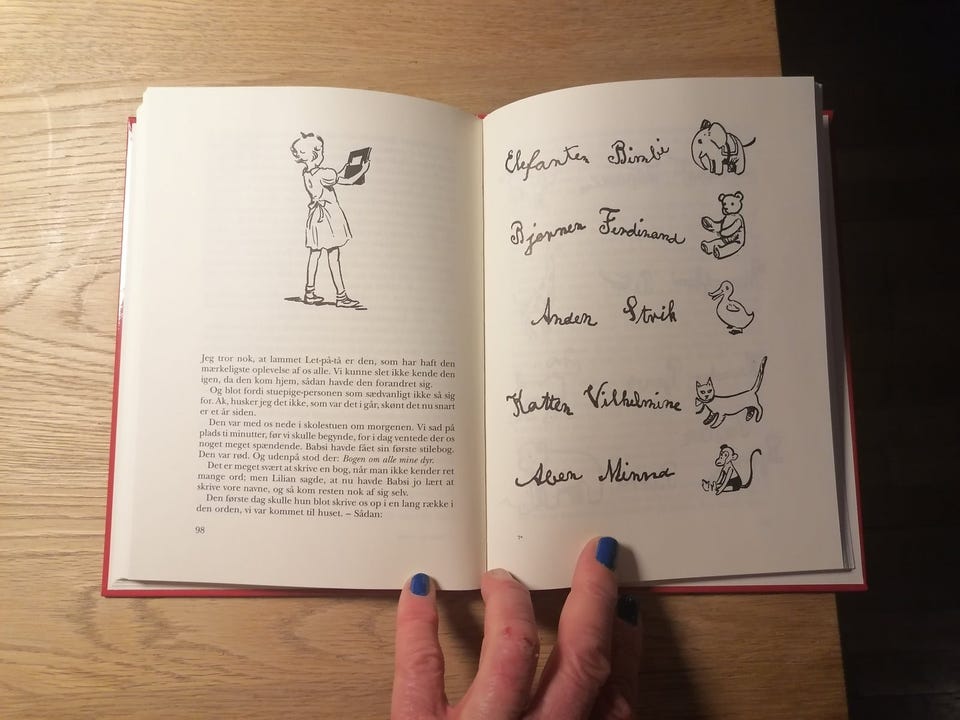 Jeg tror nok, at lammet Let-på-tå er den, som har haft den
mærkeligste oplevelse af os alle. Vi kunne slet ikke kende den
igen, da den kom hjem, sådan havde den forandret sig.
Og blot fordi stuepige-personen som sædvanligt ikke så sig
for. Ak, husker jeg det ikke, som var det i går, skønt det nu snart
er et år siden.
Den var med os nede i skolestuen om morgenen. Vi sad på
plads ti minutter, før vi skulle begynde, for i dag ventede der os
noget meget spændende. Babsi havde fået sin første stilebog.
Den var rød. Og udenpå stod der: Bogen om alle mine dyr.
Det er meget svært at skrive en bog, når man ikke kender ret
mange ord; men Lilian sagde, at nu havde Babsi jo lært at
skrive vore navne, og så kom resten nok af sig selv.
Den første dag skulle hun blot skrive os op i en lang række i
den orden, vi var kommet til huset. – Sådan:
98
Elefanten Bimbi
Bjørnen Ferdinand
Anden Strik
Katten Vilhelmine
Aben Minna